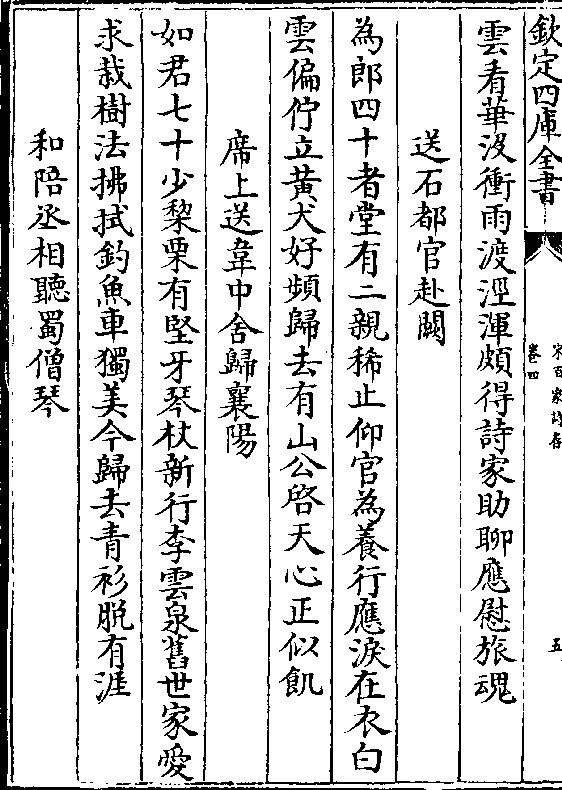 欽定四庫全書
宋百家詩存
卷四
五
雲看華没衝雨渡涇渾頗得詩家助聊應慰旅魂
送石都官赴闕
為郎四十者堂有二親稀止仰官為養行應淚在衣白
雲偏佇立黄犬好頻歸去有山公啓天心正似飢
席上送韋中舍歸襄陽
如君七十少棃栗有堅牙琴杖新行李雲泉舊世家愛
求栽樹法拂拭釣魚車獨美今歸去青衫脱有涯
和陪丞相聽蜀僧琴